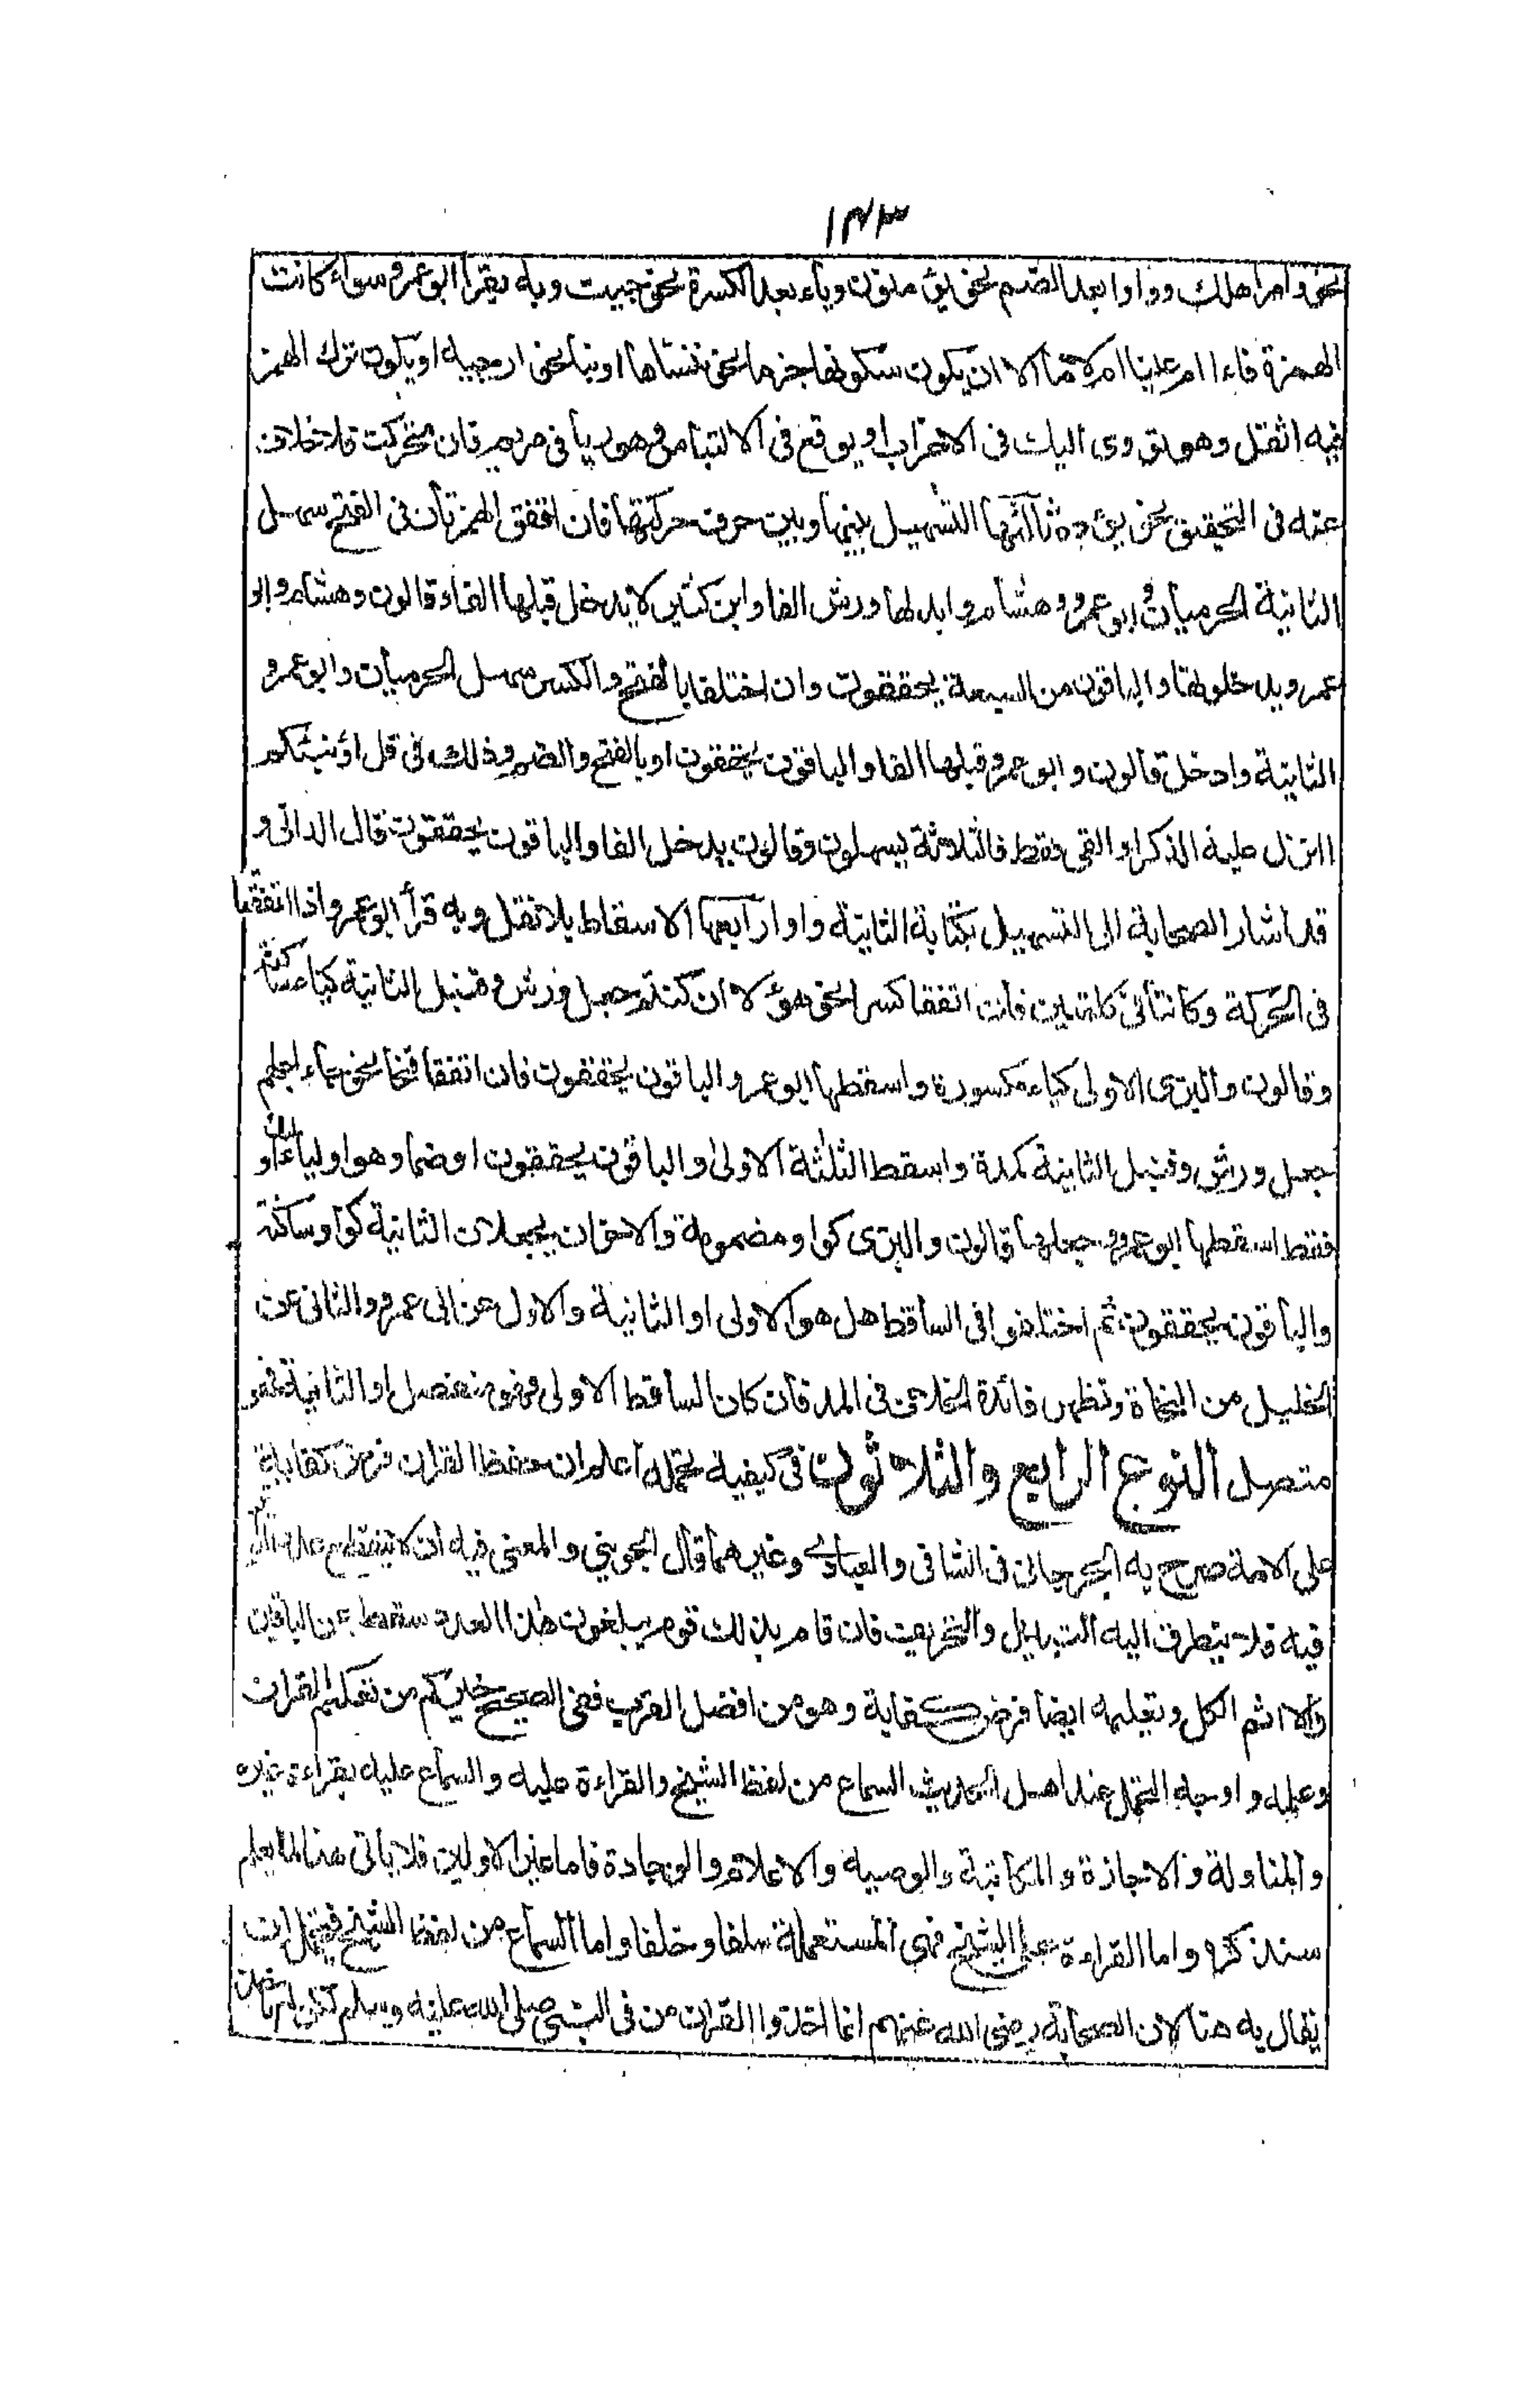 ١٢٣
نحو وامر اهلك وواوا بعد الضم نحو يؤمنون وياء بعد الكسرة نحو جيت وبه يقرا ابو عمرو سواء كانت
الهمزة فاء ام عينا ام لاما الا ان يكون سكونها جزما نحو ننسأها او بناء نحو ارجيه او يكون ترك الهمز
فيه اثقل وهو تؤوى اليك فى الاحزاب او يوقع فى الالتباس وهو ريا فى مريم فان تحركت فلا خلاف
عنه فى التحقيق نحو يؤده ثالثها التسهيل بينها وبين حرف حركتها فان اتفق الهمزتان فى الفتح سهل
الثانية الحرميان وابو عمرو وهشام وابدلها ورش الفا وابن كثير لا يدخل قبلها الفا وقالون وهشام وابو
عمرو يدخلونها والباقون من السبعة يحققون وان اختلفا بالفتح والكسر سهل الحرميان وابو عمرو
الثانية وادخل قالون وابو عمرو قبلها الفا والباقون يحققون او بالفتح والضم وذلك فى قل اؤنبئكم
اانزل عليه الذكر اوالقى فقط فالثلاثة يسهلون وقالون يدخل الفا والباقون يحققون قال الدانى و
قد اشار الصحابة الى التسهيل بكتابة الثانية واوا رابعها الاسقاط بلا نقل وبه قرأ ابو عمرو اذا اتفقتا
فى الحركة وكانتا فى كلمتين فان اتفقا كسرا نحو هؤلاء ان كنتم جعل ورش وقنبل الثانية كياء ساكنة
وقالون والبزى الاولى كياء مكسورة واسقطها ابو عمرو والباقون يحققون فان اتفقا فتحا نحو جاء اجلهم
جعل ورش وقنبل الثانية كمدة واسقط الثلثة الاولى والباقون يحققون او ضما وهو اولياء اولئك
فقط اسقطها ابو عمرو وجعلها قالون والبزى كواو مضمومة والاخران يجعلان الثانية كواو ساكنة
والباقون يحققون ثم اختلفوا فى الساقط هل هو الاولى او الثانية والاول عن ابى عمرو والثانى عن
الخليل من النحاة وتظهر فائدة الخلاف فى المد فان كان الساقط الاولى فهو منفصل او الثانية فهو
متصل النوع الرابع والثلاثون فى كيفية تحمله اعلم ان حفظ القران فرض كفاية
على الامة صرح به الجرجانى فى الشافى والعبادى وغيرهما قال الجوينى والمعنى فيه ان لا ينقطع عدد التواتر
فيه فلا يتطرق اليه التبديل والتحريف فان قام بذلك قوم يبلغون هذا العدد سقط عن الباقين
والا اثم الكل وتعليمه ايضا فرض كفاية وهو من افضل القرب ففى الصحيح خيركم من تعلم القران
وعلمه واوجه التحمل عند اهل الحديث السماع من لفظ الشيخ والقراءة عليه والسماع عليه بقراءة غيره
والمناولة والاجازة والمكاتبة والوصيه والاعلام والوجادة فاما غير الاولين فلا ياتى هنا لما يعلم
سنذكره واما القراءة على الشيخ فهى المستعملة سلفا وخلفا واما السماع من لفظ الشيخ فيحتمل ان
يقال به هنا لان الصحابة رضى الله عنهم انما اخذوا القران من فى النبى صلى الله عليه وسلم لكن لم ياخذ